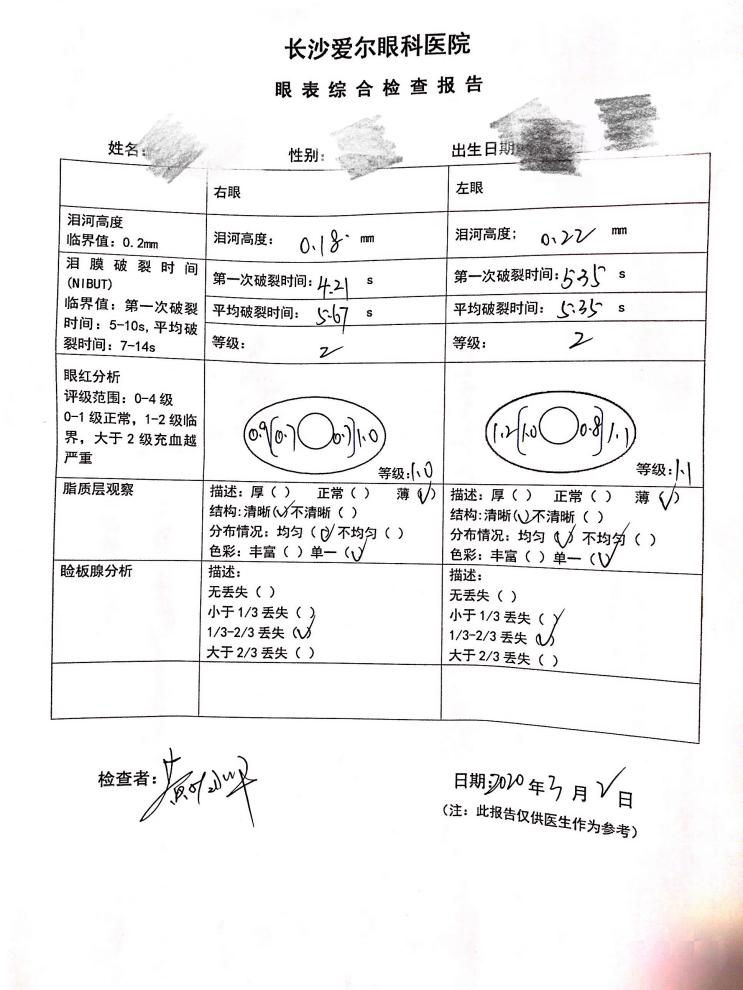 长沙爱尔眼科医院
眼表综合检查报告
姓名: 性别: 出生日期:
右眼 左眼
泪河高度
临界值: 0.2mm
泪河高度: 0.18 mm
泪河高度: 0.22 mm
泪膜破裂时间
(NIBUT)
临界值: 第一次破裂
时间: 5-10s, 平均破
裂时间: 7-14s
第一次破裂时间: 4.21 s
第一次破裂时间: 5.35 s
平均破裂时间: 5.67 s
平均破裂时间: 5.35 s
等级: 2
等级: 2
眼红分析
评级范围: 0-4 级
0-1 级正常, 1-2 级临
界, 大于 2 级充血越
严重
0.9 0.7 0.7 1.0
等级: 1.0
1.2 1.0 0.8 1.1
等级: 1.1
脂质层观察
描述: 厚 ( ) 正常 ( ) 薄 (√)
结构: 清晰 (√) 不清晰 ( )
分布情况: 均匀 (√) 不均匀 ( )
色彩: 丰富 ( ) 单一 (√)
描述: 厚 ( ) 正常 ( ) 薄 (√)
结构: 清晰 (√) 不清晰 ( )
分布情况: 均匀 (√) 不均匀 ( )
色彩: 丰富 ( ) 单一 (√)
睑板腺分析
描述:
无丢失 ( )
小于 1/3 丢失 ( )
1/3-2/3 丢失 (√)
大于 2/3 丢失 ( )
描述:
无丢失 ( )
小于 1/3 丢失 ( )
1/3-2/3 丢失 (√)
大于 2/3 丢失 ( )
检查者:
日期: 2020 年 3 月 2 日
(注: 此报告仅供医生作为参考)